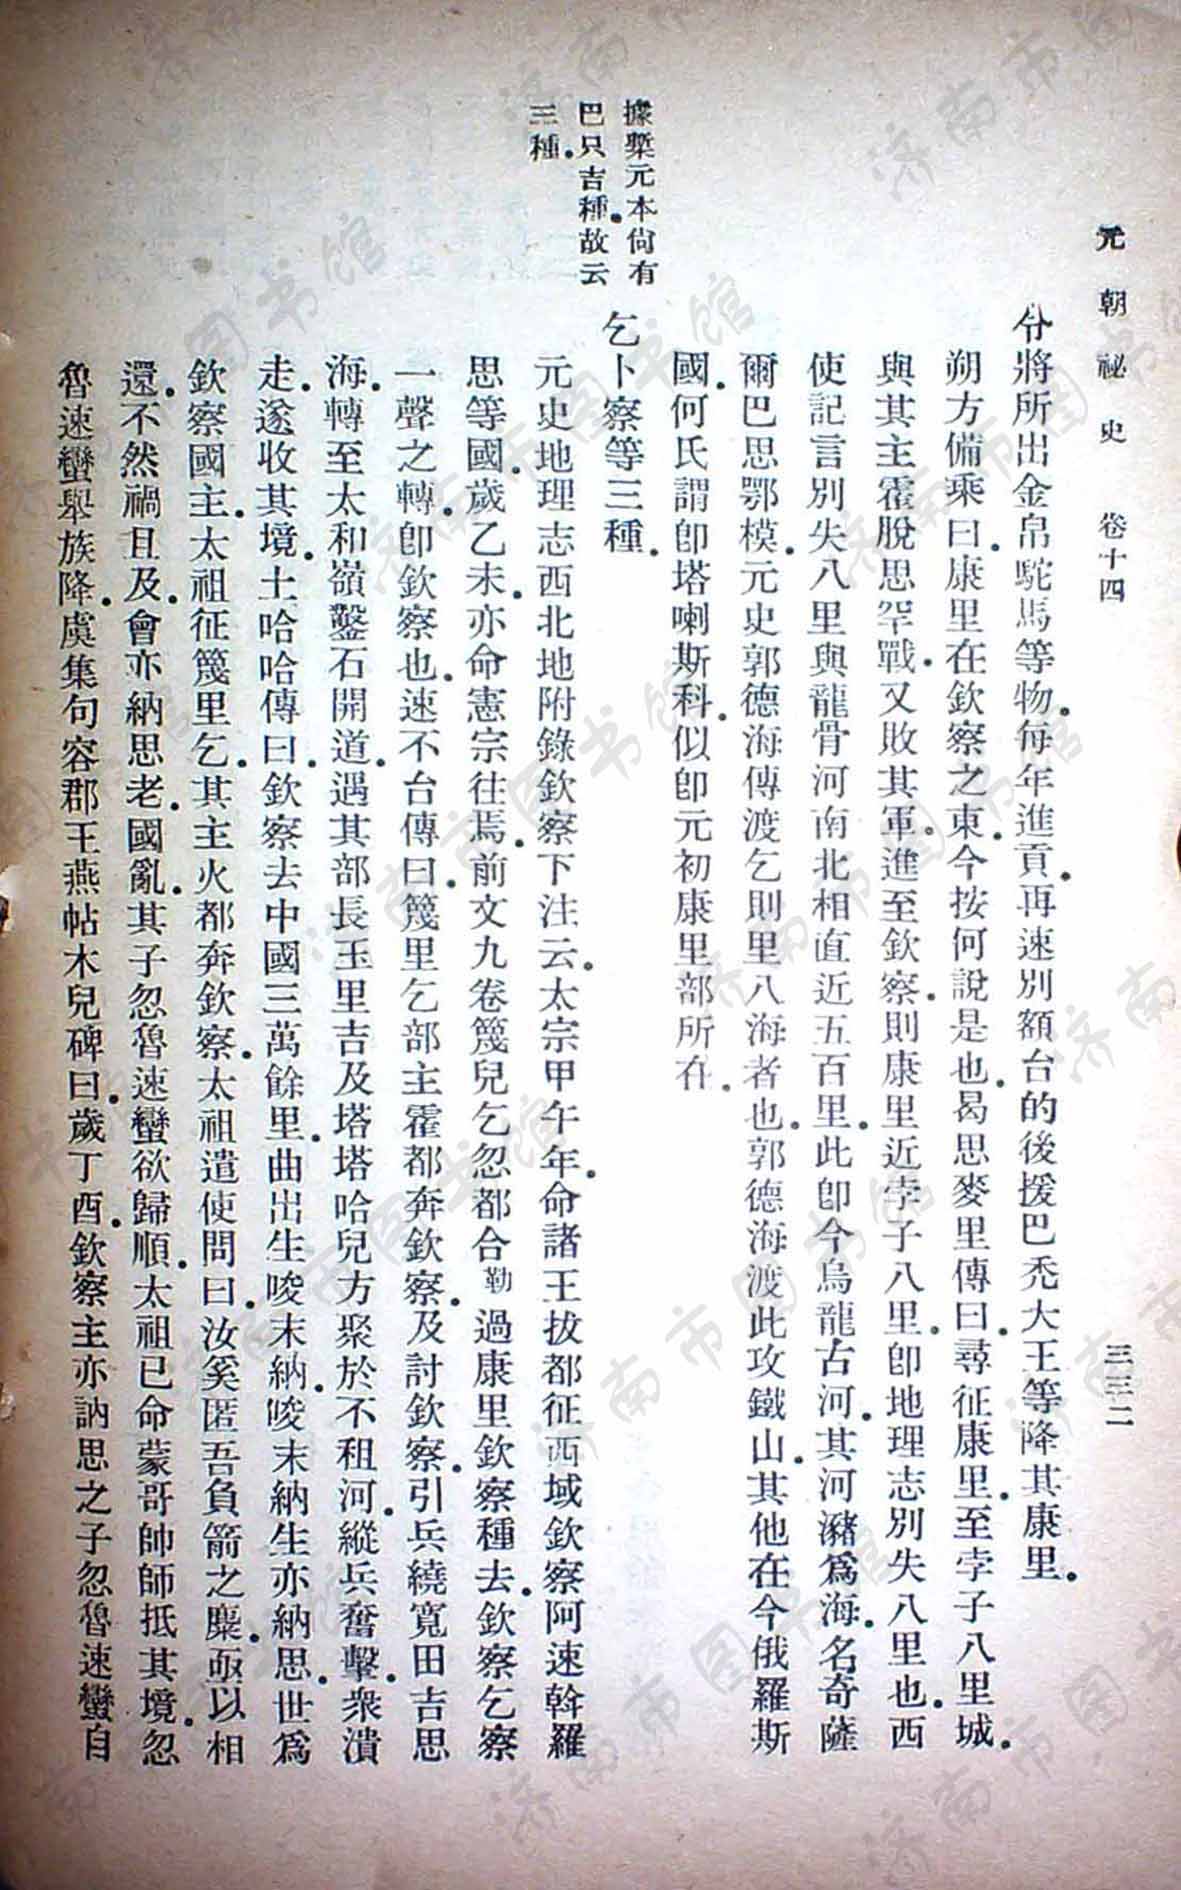 元朝祕史 卷十四 三三二
據槧元本尙有
巴只吉種故云
三種
令將所出金帛駝馬等物每年進貢再速別額台的後援巴禿大王等降其康里
朔方備乘曰康里在欽察之東今按何說是也曷思麥里傳曰尋征康里至孛子八里城
與其主霍脫思罕戰又敗其軍進至欽察則康里近孛子八里卽地理志別失八里也西
使記言別失八里與龍骨河南北相直近五百里此卽今烏龍古河其河瀦爲海名奇薩
爾巴思鄂模元史郭德海傳渡乞則里八海者也郭德海渡此攻鐵山其他在今俄羅斯
國何氏謂卽塔喇斯科似卽元初康里部所在
乞卜察等三種
元史地理志西北地附錄欽察下注云太宗甲午年命諸王拔都征西域欽察阿速斡羅
思等國歲乙未亦命憲宗往焉前文九卷篾兒乞忽都合勒過康里欽察種去欽察乞察
一聲之轉卽欽察也速不台傳曰篾里乞部主霍都奔欽察及討欽察引兵繞寬田吉思
海轉至太和嶺鑿石開道遇其部長玉里吉及塔塔哈兒方聚於不租河縱兵奮擊衆潰
走遂收其境土哈哈傳曰欽察去中國三萬餘里曲出生唆末納唆末納生亦納思世爲
欽察國主太祖征篾里乞其主火都奔欽察太祖遣使問曰汝奚匿吾負箭之麋亟以相
還不然禍且及會亦納思老國亂其子忽魯速蠻欲歸順太祖已命蒙哥帥師抵其境忽
魯速蠻舉族降虞集句容郡王燕帖木兒碑曰歲丁酉欽察主亦訥思之子忽魯速蠻自